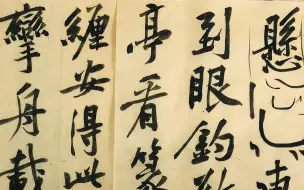 懸心
到眼
亭看篆
纏安得此
攣舟載